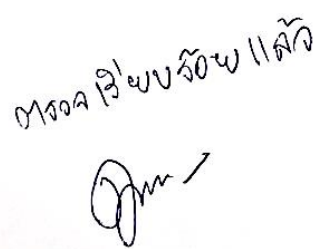 ตรวจเรียบร้อยแล้ว